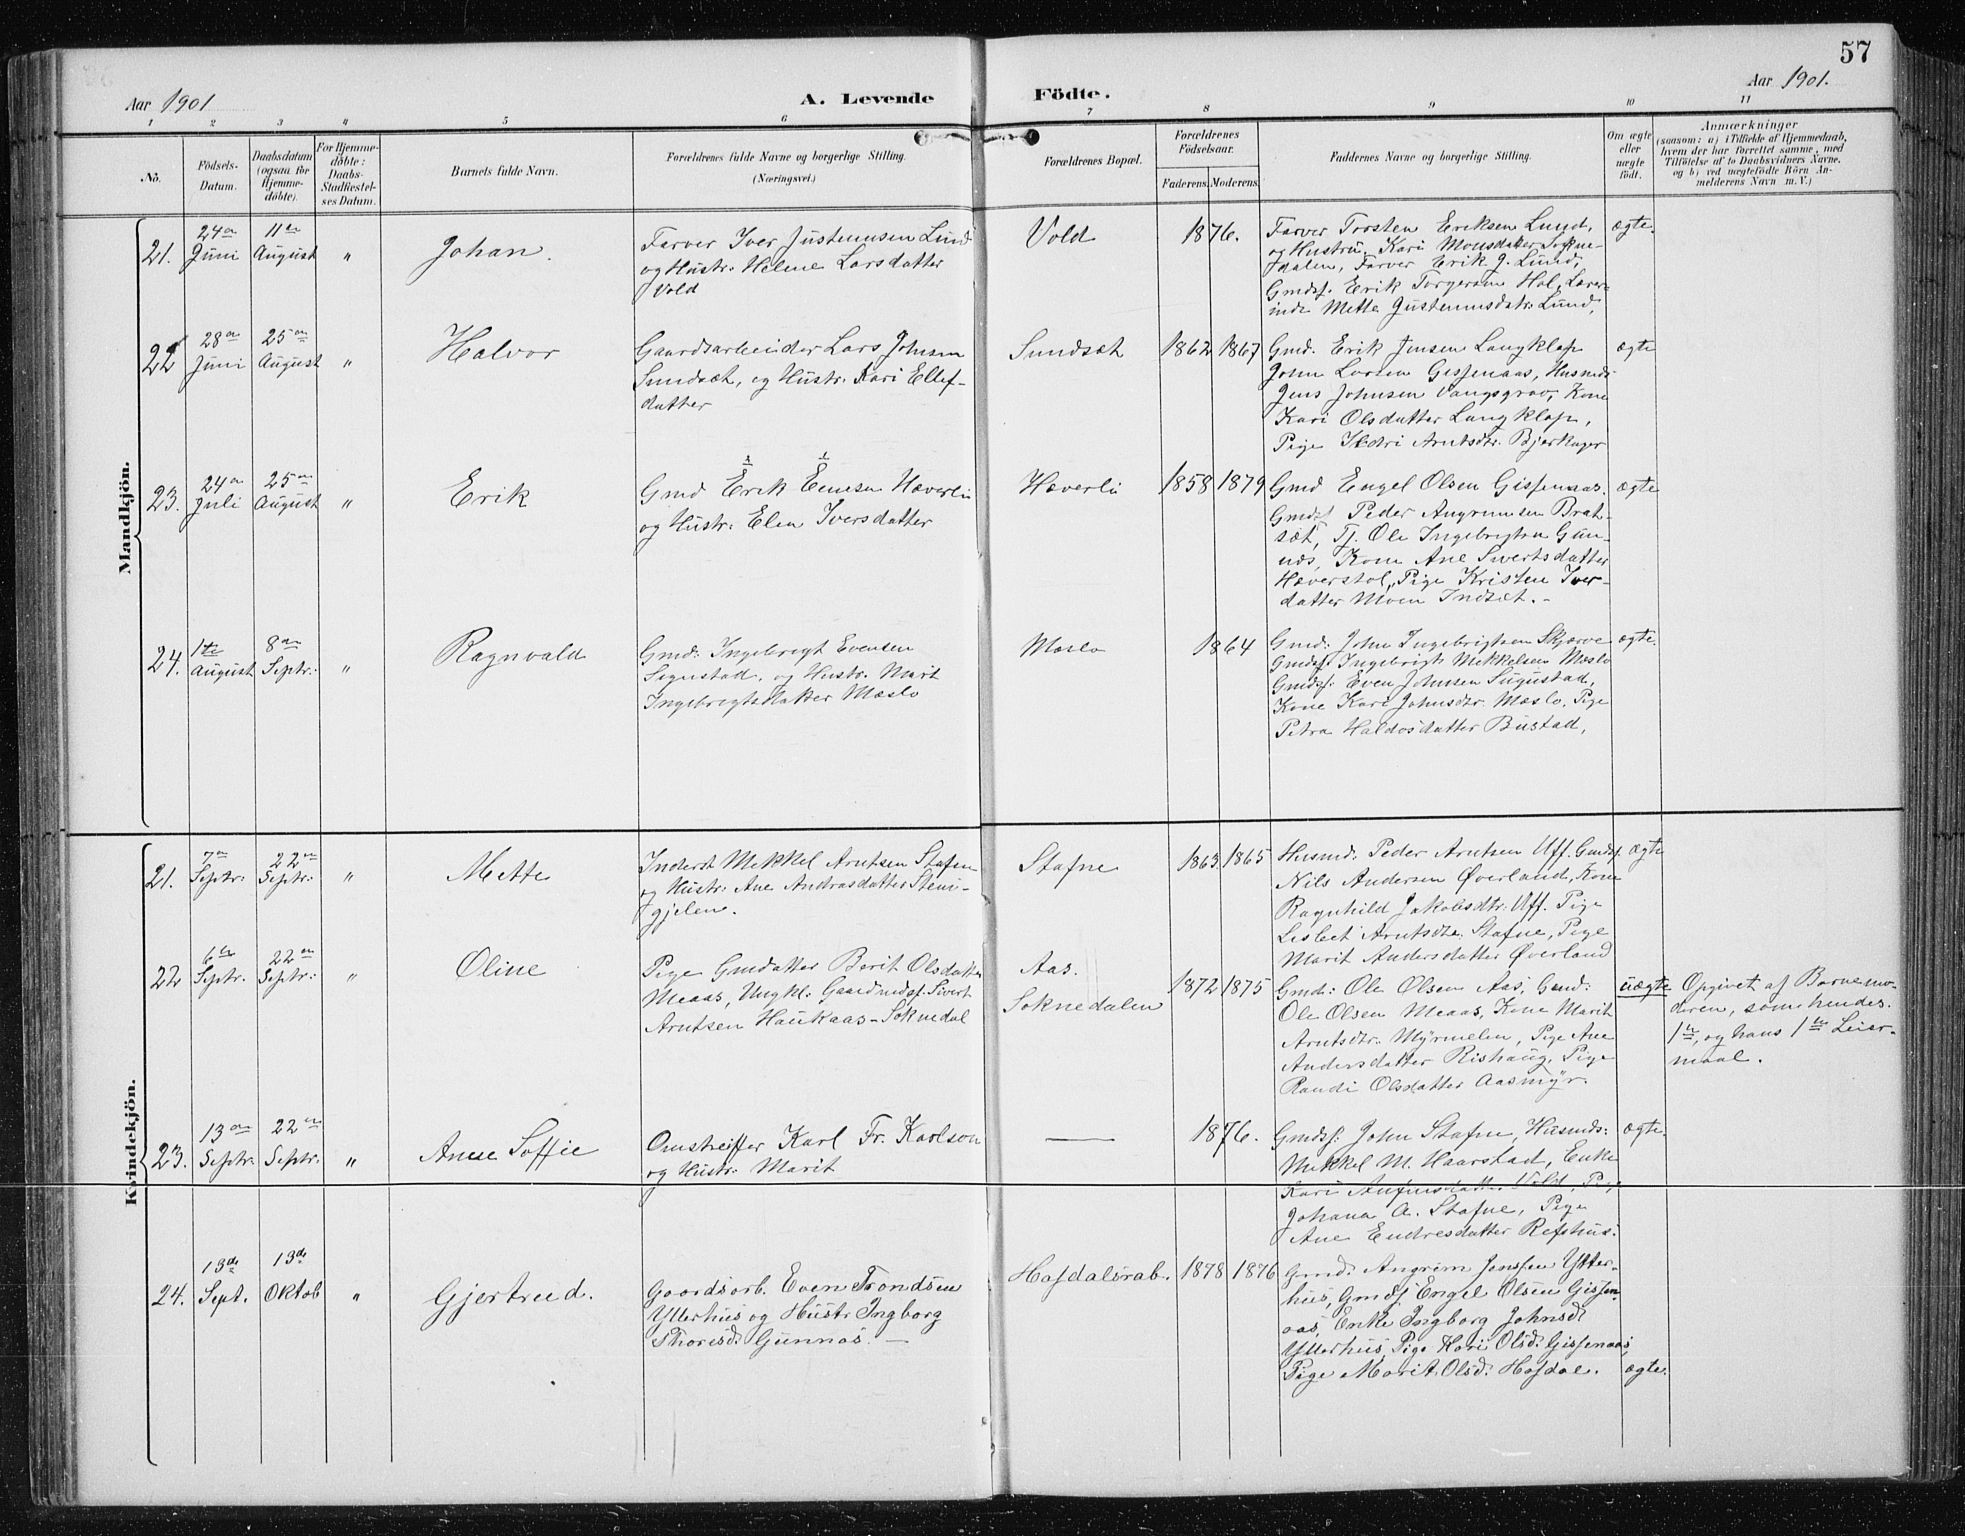 57
Aar 1901
A. Levende Födte.
Aar 1901.
1 2 3 4 5 6 7 8 9 10 11
No.
Födsels-
Datum.
Daabsdatum
(ogsaa for
Hjemme-
döbte).
For Hjemme-
döbte:
Daabs-
Stadfæstel-
ses Datum.
Barnets fulde Navn.
Forældrenes fulde Navne og borgerlige Stilling.
(Næringsvei.)
Forældrenes Bopæl.
Forældrenes
Födselsaar.
Faderens. Moderens.
Faddernes Navne og borgerlige Stilling.
Om ægte
eller
uægte
födt.
Anmærkninger
(saasom: a) i Tilfælde af Hjemmedaab,
hvem der har forrettet samme, med
Tilföielse af to Daabsvidners Navne.
og b) ved uægtefödte Börn An-
melderens Navn m. V.)
Mandkjön.
21.
24de
Juni
11te
August
"
Johan.
Farver Iver Justensen Lund
og Hustr. Helene Larsdatter
Vold
Vold
1876.
Farver Torsten Eriksen Lund,
og Hustru Kari Monsdatter Sokne-
dalen, Farver Erik J. Lund,
Gmdsf. Erik Torgersen Hol, Lærer-
inde Mette Lund,
ægte.
22
28de
Juni
25de
August
"
Halvor
Gaardsarbeider Lars Johnsen
Sundsæt, og Hustr. Kari Ellef-
datter
Sundsæt
1862 1867
Gmd. Erik Jensen Langklop
John Larsen Gissenaas, Husmds
Jens Johnsen Vangsgrav, Kone
Kari Olsdatter Langklop,
Pige Ildri Arntsdtr. Bjerkager
ægte
23.
24de
Juli
25de
August
"
Erik
x x
Gmd Erik Hæverli
og Hustr: Elen Iversdatter
Hæverli
1858 1879
Gmd Engel Olsen Gissenaas.
Gmdsf Peder Angrimsen Brat-
sæt, Tj. Ole Ingebrigtsn Gun-
næs, Kone Ane Sivertsdatter
Hæverstøl, Pige Kristen Iver-
datter Moen Indsæt. -
ægte
24.
1ste
August
8de
Septr:
"
Ragnvald
Gmd: Ingebrigt Evensen
Sugustad, og Hustr. Marit
Ingebrigtsdatter Mæslo
Mæslo
1864
Gmd: John Ingebrigtsen Skjærve
Gmdsf. Ingebrigt Mekkelsen Mæslo
Gmdsf. Even Johnsen Sugustad,
Kone Kari Johnsdtr. Mæslo, Pige
Petra Haldosdatter Bustad,
ægte.
Kvindekjön.
21.
7de
Septr:
22de
Septr:
"
Mette
Inderst Mekkel Arntsen Stafne
og Hustr: Ane Andrasdatter Steni-
gjelen.
Stafne
1863 1865
Husmd: Peder Arntsen Uff. Gmdsf.
Nils Andersen Øverland, Kone
Ragnhild Jakobsdtr: Uff. Pige
Lisbet Arntsdtr. Stafne, Pige
Marit Andersdatter Øverland
ægte
22
6te
Septr:
22de
Septr:
"
Oline
Pige Gmdatter Berit Olsdatter
Meaas, Ungkl: Gaardmdsf. Sivert
Arntsen Haukaas - Soknedal
Aas.
Soknedalen
1872 1875
Gmd: Ole Olsen Aas, Gmd:
Ole Olsen Meaas, Kone Marit
Arntsdtr. Myrmelen, Pige Ane
Andersdatter Rishaug, Pige
Randi Olsdatter Aasmyr.
uægte
Opgivet af Barnemo-
deren, som hendes
1te, og hans 1te Leier-
maal.
23.
13de
Septr:
22de
Septr:
"
Anne Soffie
Omstreiffer Karl Fr. Karlson
og Hustr: Marit
—
1876.
Gmdsf: John Stafne, Husmds:
Mekkel M. Haarstad, Enke
Kari Anfinsdatter Vold, Pi
Johana A. Stafne, Pige
Ane Endresdatter Refshus.
ægte.
24.
13de
Sept.
13de
Oktob
"
Gjertrud.
Gaardsarb. Even Trondsen
Ytterhus og Hustr Ingborg
Thoresd. Gunnæs —
Hafdalsrab.
1878 1876
Gmd. Angrim Jonssen Ytter-
hus, Gmdsf Engel Olsen Gissen-
aas, Enke Ingborg Johnsd.
Ytterhus, Pige Kari Olsd. Gissenaas,
Pige Marit Olsd. Hafdal.
ægte.